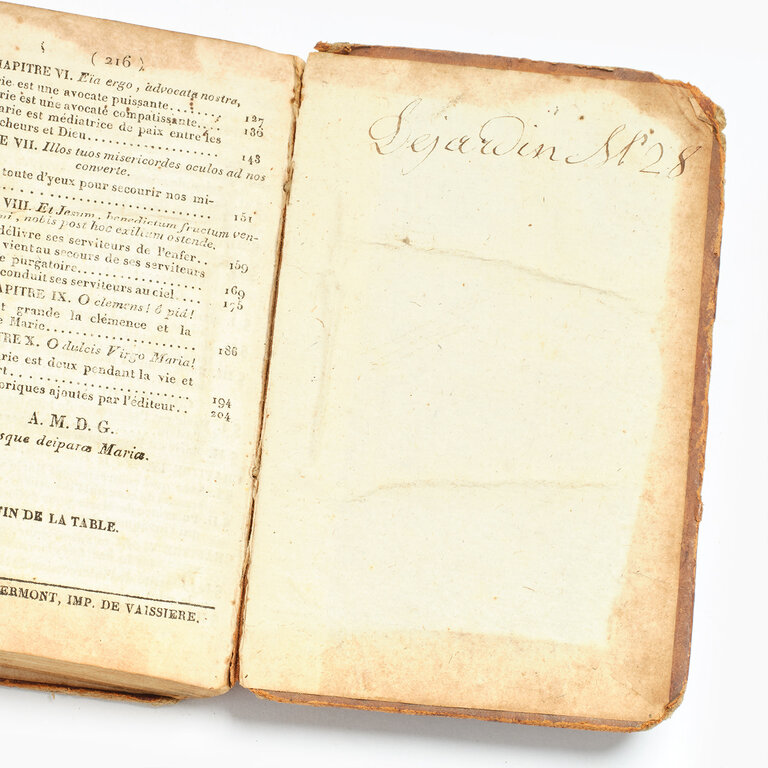 ( 216 )
HAPITRE VI. Eia ergo, advocata nostra,
rie est une avocate puissante....... 127
arie est une avocate compatissante.... 136
arie est médiatrice de paix entre les
cheurs et Dieu..................... 148
E VII. Illos tuos misericordes oculos ad nos
converte.
toute d'yeux pour secourir nos mi-
........................ 151
VIII. Et Jesum, benedictum fructum ven-
nobis post hoc exilium ostende.
délivre ses serviteurs de l'enfer.. 159
vient au secours de ses serviteurs
e purgatoire.................... 169
conduit ses serviteurs au ciel.... 175
APITRE IX. O clemens! ô pia!
t grande la clémence et la
e Marie.................... 186
TRE X. O dulcis Virgo Maria!
arie est deux pendant la vie et
rt..................... 194
oriques ajoutés par l'éditeur.. 204
A. M. D. G.
sque deiparæ Mariæ.
FIN DE LA TABLE.
ERMONT, IMP. DE VAISSIERE.
Déjardin N° 28